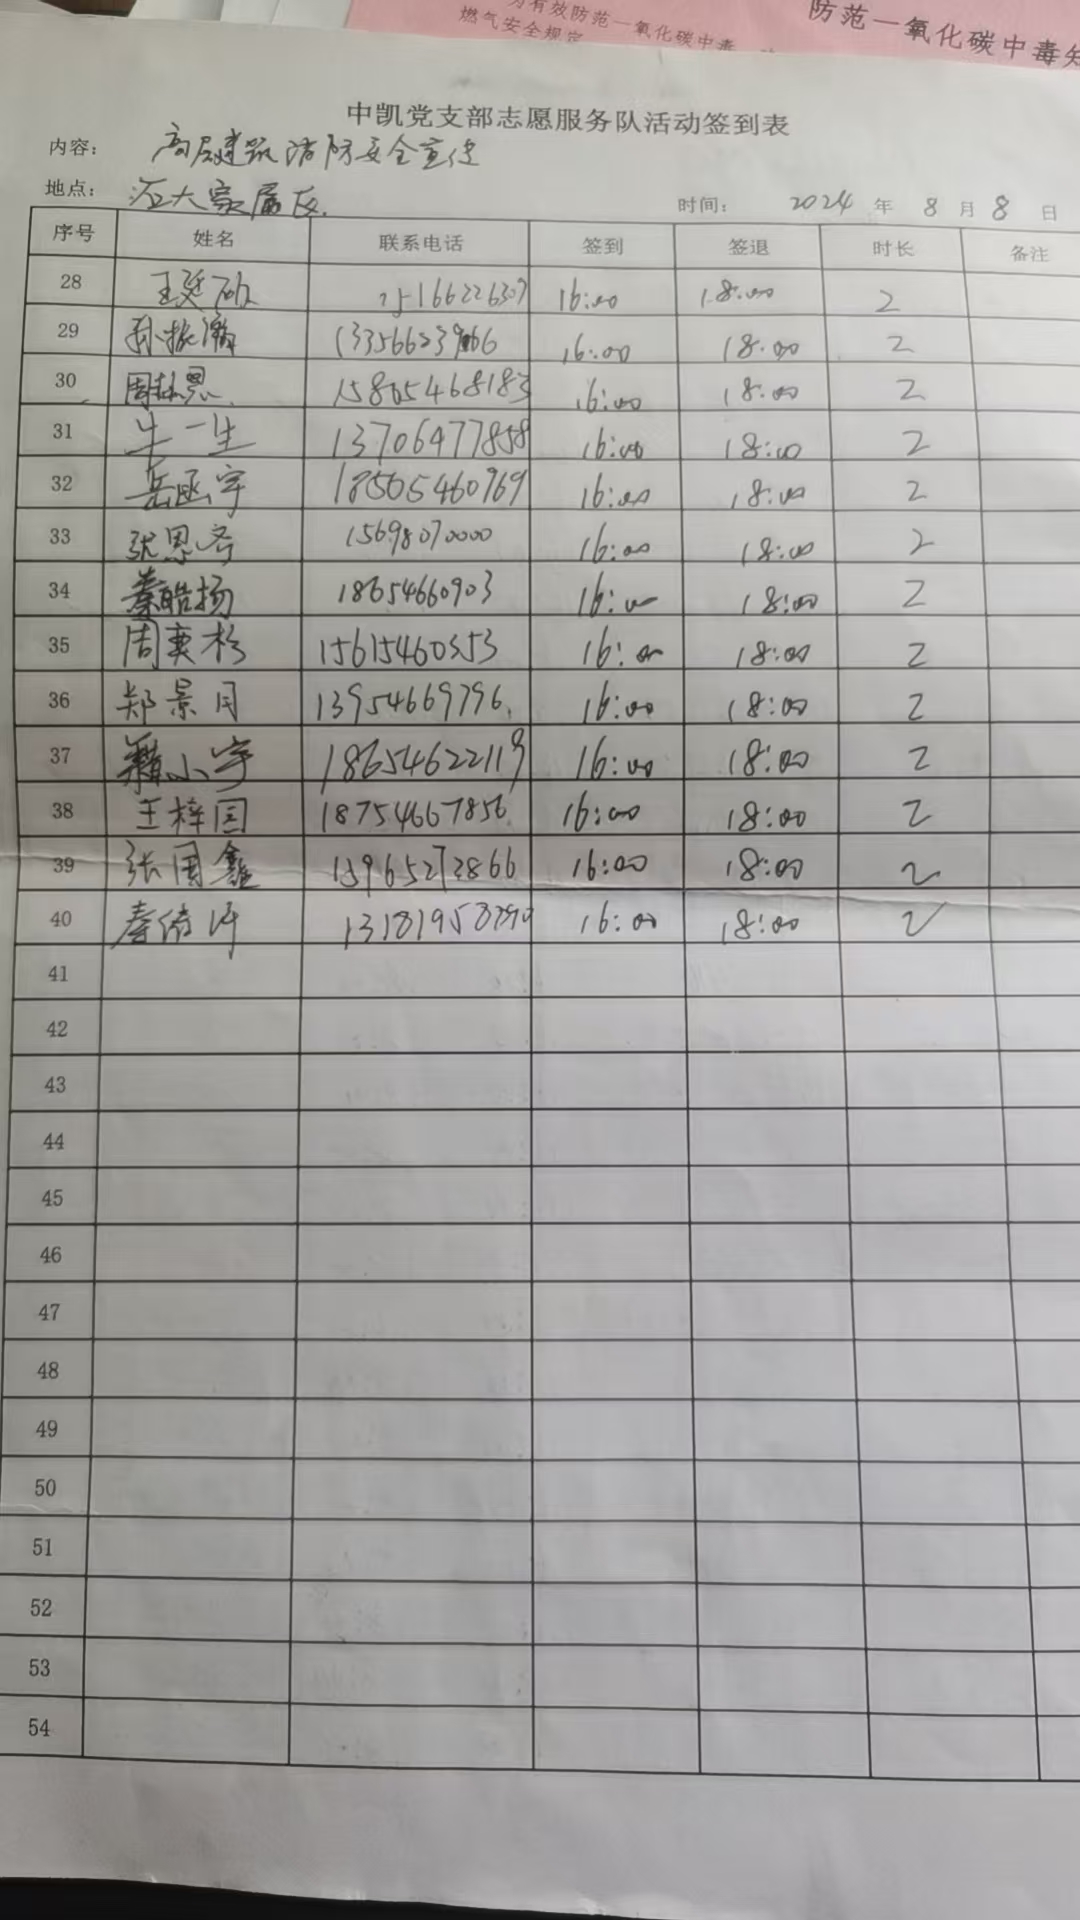 为有效防范一氧化碳中毒
燃气安全规定
防范一氧化碳中毒知
中凯党支部志愿服务队活动签到表
内容： 高层建筑消防安全宣传
地点： 石大家属区
时间： 2024 年 8 月 8 日
序号 姓名 联系电话 签到 签退 时长 备注
28 16:00 18:00 2
29 孙振瀚 16:00 18:00 2
30 15865468183 16:00 18:00 2
31 牛一生 13706477858 16:00 18:00 2
32 岳函宇 18505460769 16:00 18:00 2
33 张思齐 15698070000 16:00 18:00 2
34 秦皓扬 18654660903 16:00 18:00 2
35 周奕杉 15615460353 16:00 18:00 2
36 郑景月 13954669796 16:00 18:00 2
37 小宇 18654622119 16:00 18:00 2
38 王梓国 18754667856 16:00 18:00 2
39 张国鑫 15965272866 16:00 18:00 2
40 16:00 18:00 2
41
42
43
44
45
46
47
48
49
50
51
52
53
54